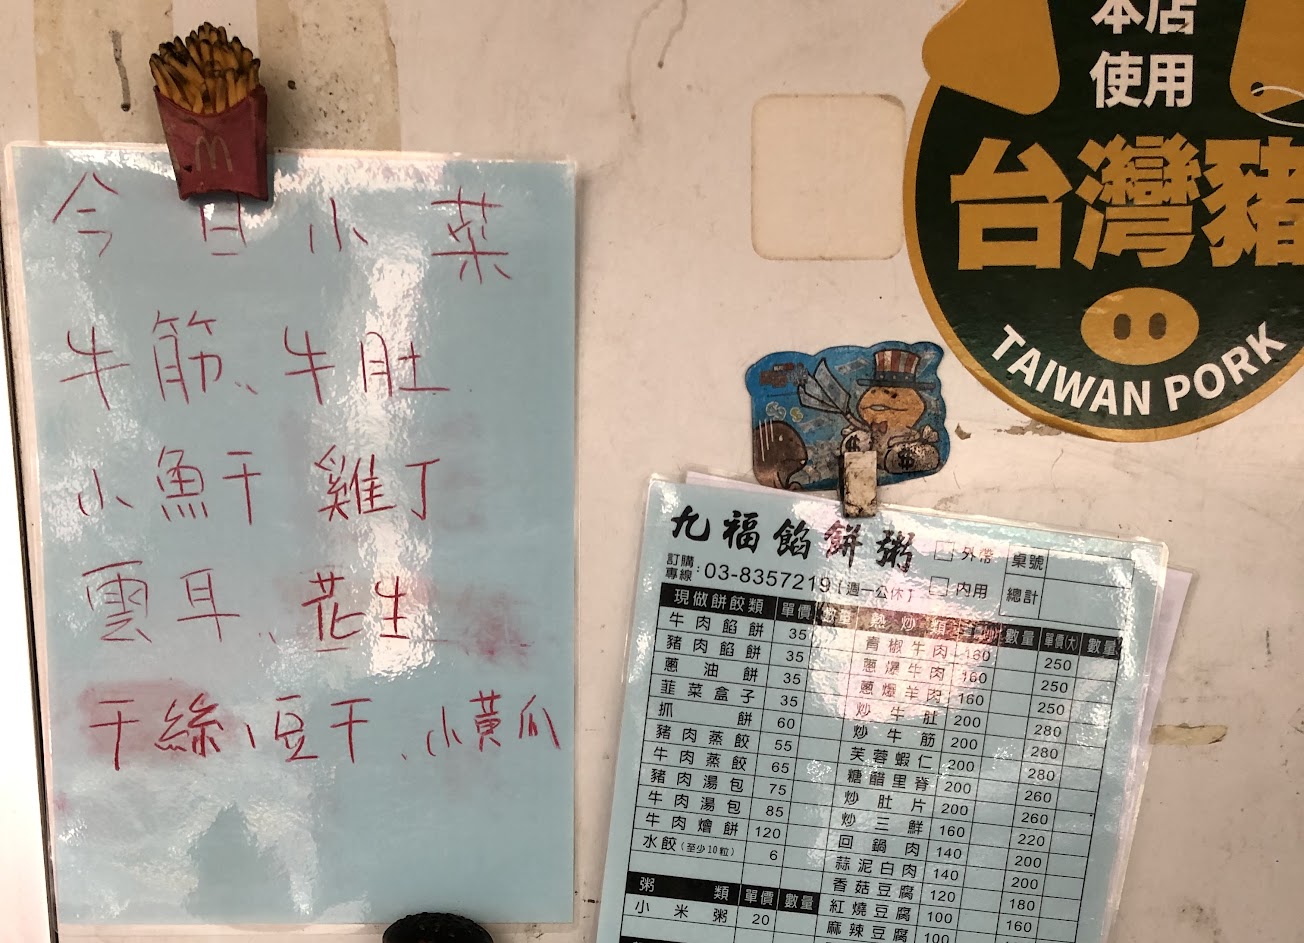 今日小菜
牛筋、牛肚
小魚干 雞丁
雲耳、花生
干絲、豆干、小黃瓜
本店
使用
台灣豬
TAIWAN PORK
九福餡餅粥
訂購
專線:03-8357219(週一公休)
□外帶 桌號
□內用 總計
現做餅餃類 單價 數量
牛肉餡餅 35
豬肉餡餅 35
蔥油餅 35
韭菜盒子 35
抓餅 60
豬肉蒸餃 55
牛肉蒸餃 65
豬肉湯包 75
牛肉湯包 85
牛肉燴餅 120
水餃(至少10粒) 6
粥類 單價 數量
小米粥 20
熱炒類 數量 單價(大) 數量
青椒牛肉 160 250
蔥爆牛肉 160 250
蔥爆羊肉 160 250
炒牛肚 200 280
炒牛筋 200 280
芙蓉蝦仁 200 280
糖醋里脊 200 260
炒肚片 200 260
炒三鮮 160 220
回鍋肉 140 200
蒜泥白肉 140 200
香菇豆腐 120 180
紅燒豆腐 100 160
麻辣豆腐 100